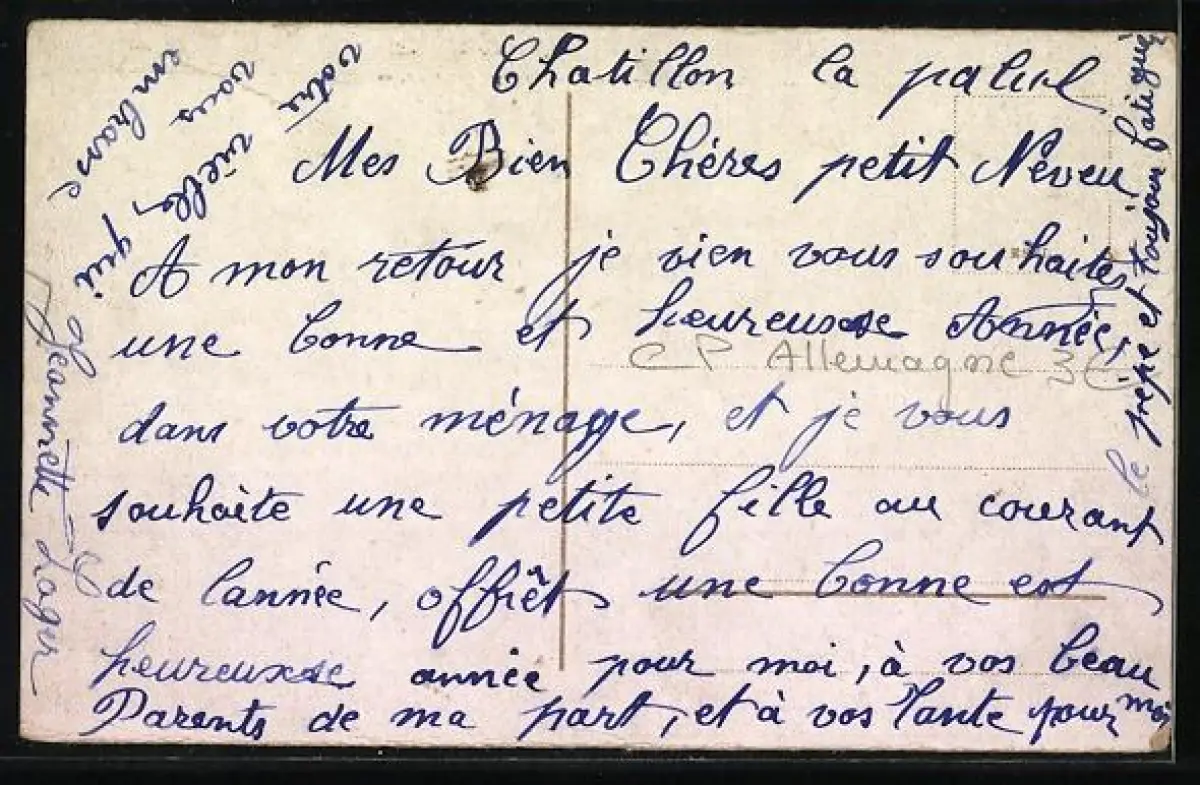 Chatillon la palud
Mes Bien Chères petit Neveu
A mon retour je vien vous souhaites
une bonne et heureusse Année,
CP Allemagne 3€
dans votre ménage, et je vous
souhaite une petite fille au courant
de lannée, offrêt une bonne est
heureusse année pour moi, à vos beau
Parents de ma part, et à vos Tante pour moi
le frère et toujour fatigué
votre
vieille, qui
vous
embrasse
Jeannette Loger